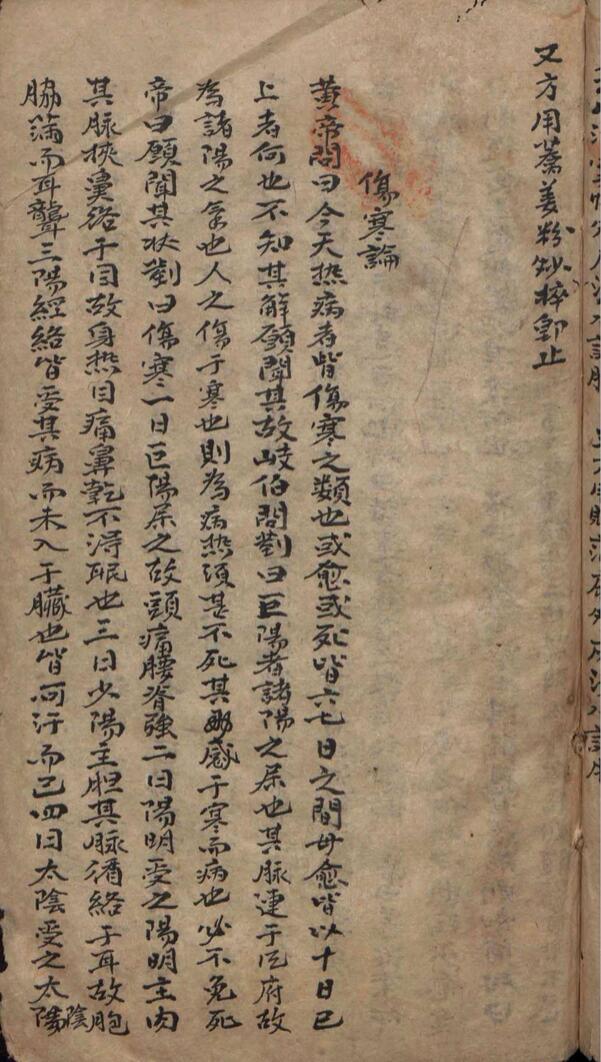 又方用蕎姜粉炒擦即止
傷寒論
黃帝問曰今天热病者皆傷寒之類也或愈或死皆六七日之間毋愈皆以十日已
上者何也不知其解願聞其故岐伯問對曰巨陽者諸陽之屬也其脉連于風府故
為諸陽之氣也人之傷于寒也則為病热須甚不死其両感于寒而病也必不免死
帝曰願聞其状對曰傷寒一日巨陽屬之故頭痛腰脊強二日陽明受之陽明主肉
其脉挾鼻络于目故身热目痛鼻乾不淂眠也三日少陽主胆其脉循絡于耳故胞
脇满而耳聾三陽經絡皆受其病而未入于臟也皆可汗而已四日太陰受之太陽陰